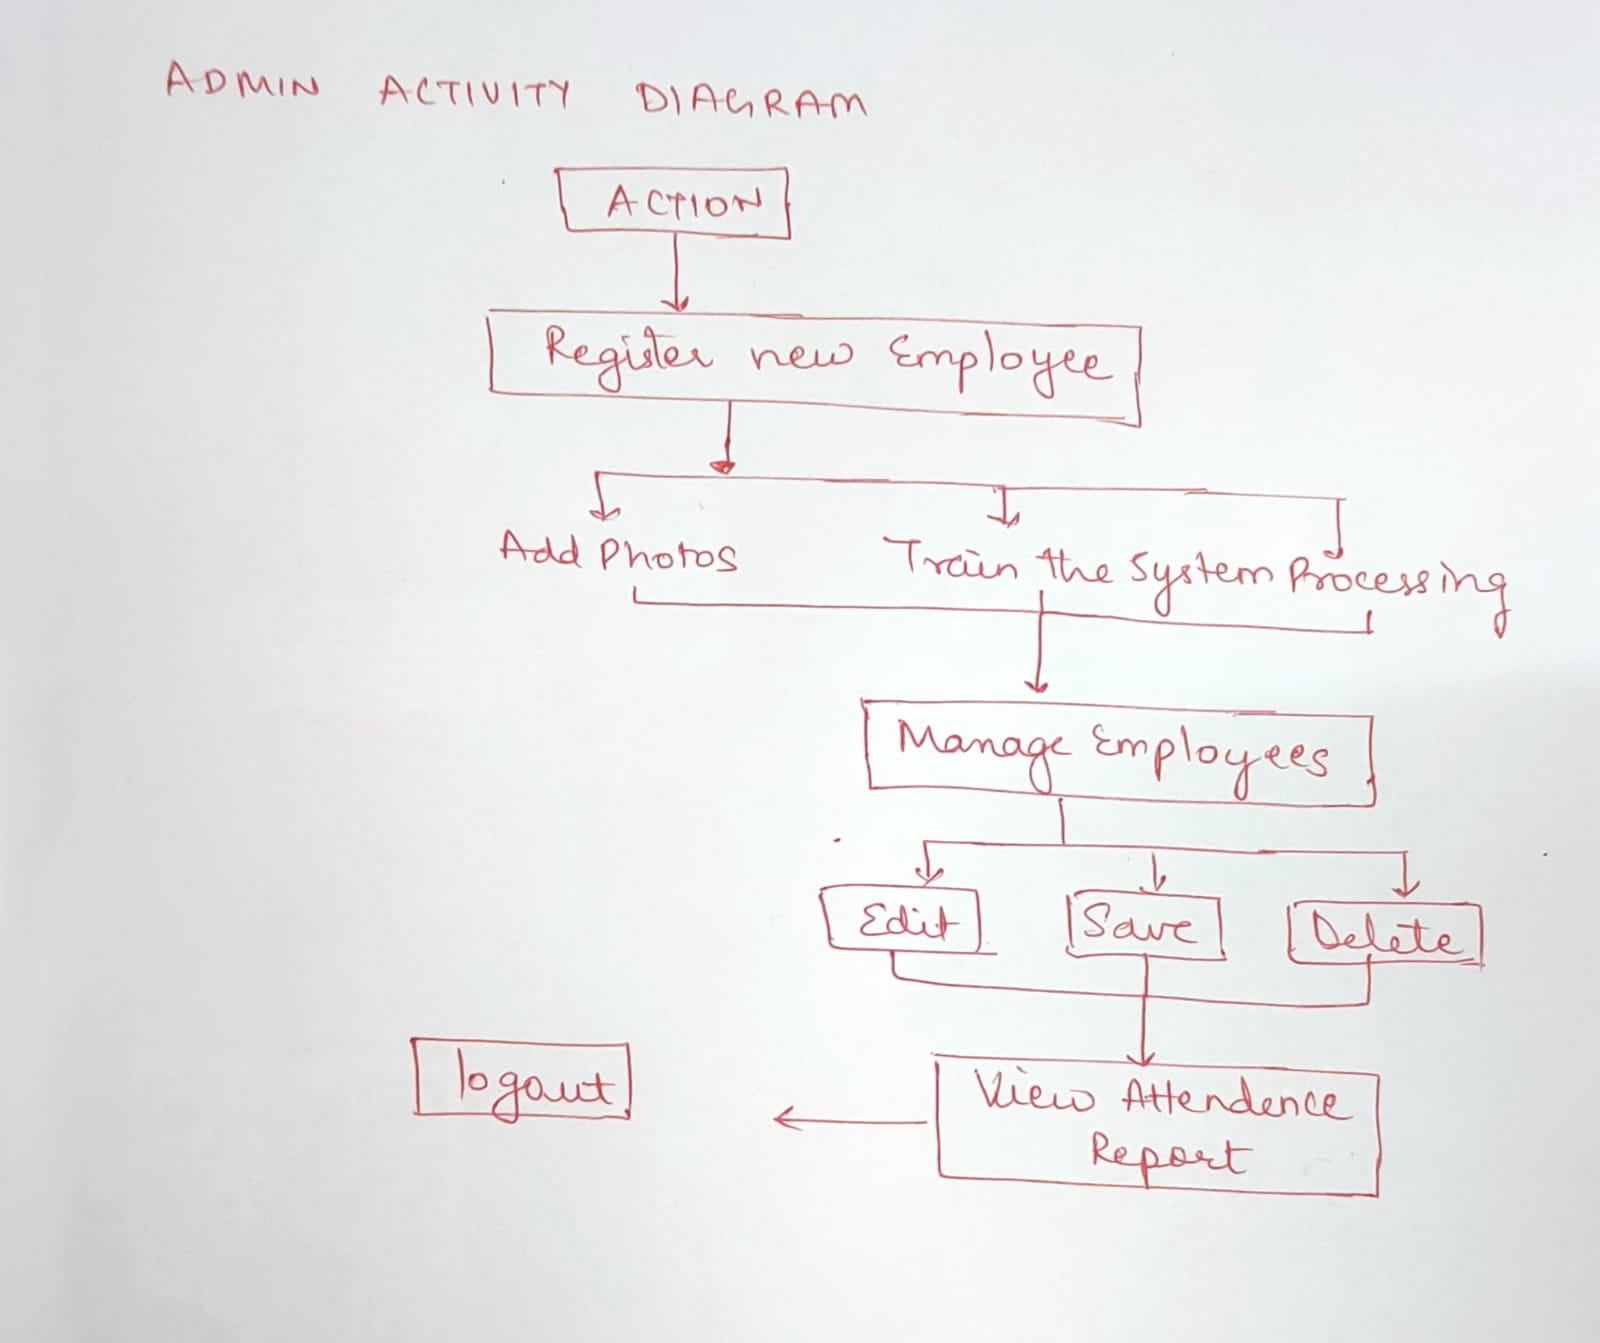 ADMIN ACTIVITY DIAGRAM
ACTION
Register new Employee
Add Photos
Train the System Processing
Manage Employees
Edit
Save
Delete
logout
View Attendence
Report